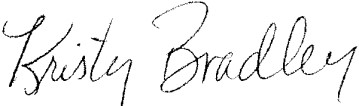 Kristy Bradley